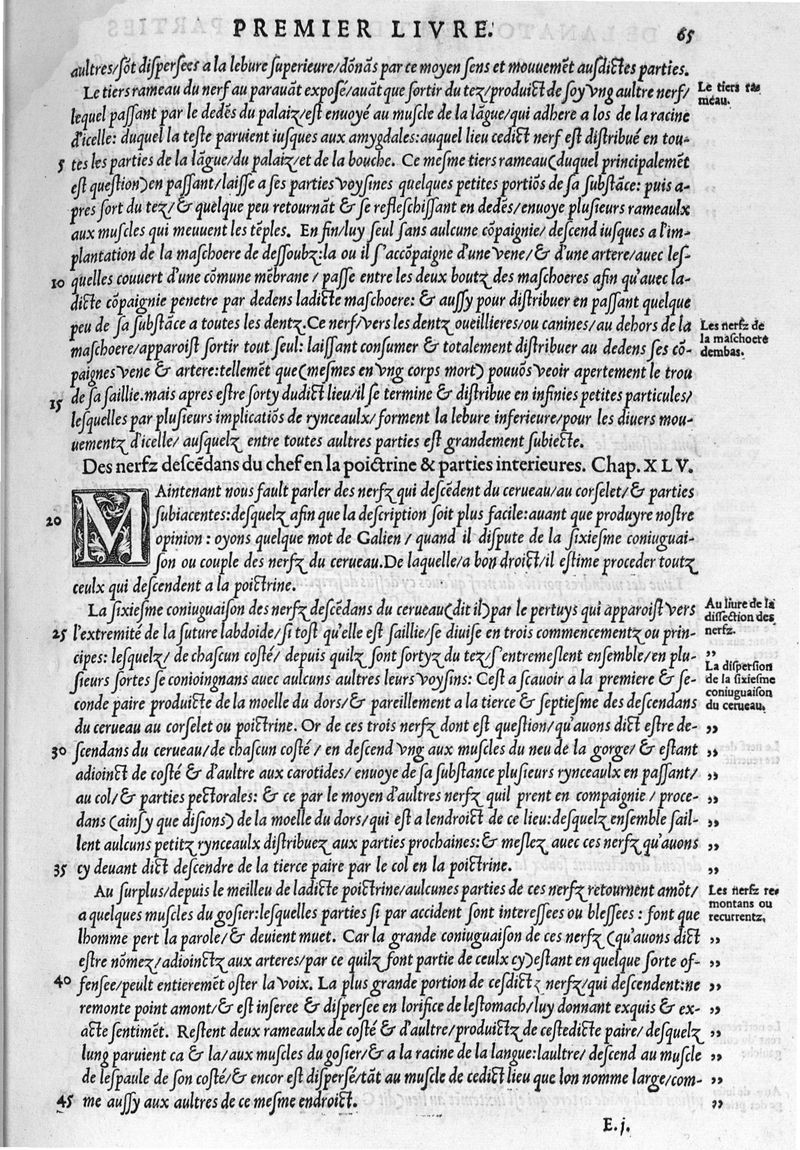 PREMIER LIVRE. 65
aultres/sõt dispersees a la lebure superieure/dõnãs par ce moyen sens et mouuemẽt ausdictes parties.
Le tiers rameau du nerf au parauãt exposé/auãt que sortir du tez/produict de soy vng aultre nerf/
Le tiers ra-
meau.
lequel passant par le dedẽs du palaiz/est enuoyé au muscle de la lãgue/qui adhere a los de la racine
d'icelle: duquel la teste paruient iusques aux amygdales:auquel lieu cedict nerf est distribué en tou-
5 tes les parties de la lãgue/du palaiz/et de la bouche. Ce mesme tiers rameau(duquel principalemẽt
est question)en passant/laisse a ses parties voysines quelques petites portiõs de sa substãce: puis a-
pres sort du tez/& quelque peu retournãt & se refleschissant en dedẽs/enuoye plusieurs rameaulx
aux muscles qui meuuent les tẽples. En fin/luy seul sans aulcune cõpaignie/descend iusques a l'im-
plantation de la maschoere de dessoubz:la ou il s'accõpaigne d'une vene/& d'une artere/auec les-
10 quelles couuert d'une cõmune mẽbrane/passe entre les deux boutz des maschoeres afin qu'auec la-
dicte cõpaignie penetre par dedens ladicte maschoere: & aussy pour distribuer en passant quelque
peu de sa substãce a toutes les dentz.Ce nerf/vers les dentz oueillieres/ou canines/au dehors de la
Les nerfz de
la maschoere
dembas.
maschoere/apparoist sortir tout seul: laissant consumer & totalement distribuer au dedens ses cõ-
paignes vene & artere:tellemẽt que(mesmes en vng corps mort) pouuõs veoir apertement le trou
15 de sa saillie.mais apres estre sorty dudict lieu/il se termine & distribue en infinies petites particules/
lesquelles par plusieurs implicatiõs de rynceaulx/forment la lebure inferieure/pour les diuers mou-
uementz d'icelle/ausquelz entre toutes aultres parties est grandement subiecte.
Des nerfz descẽdans du chef en la poictrine & parties interieures. Chap. XLV.
MAintenant nous fault parler des nerfz qui descẽdent du cerueau/au corselet/& parties
20 subiacentes:desquelz afin que la description soit plus facile:auant que produyre nostre
opinion: oyons quelque mot de Galien/quand il dispute de la sixiesme coniuguai-
son ou couple des nerfz du cerueau.De laquelle/a bon droict/il estime proceder toutz
ceulx qui descendent a la poictrine.
La sixiesme coniuguaison des nerfz descẽdans du cerueau(dit il)par le pertuys qui apparoist vers
Au liure de la
dissection des
nerfz.
25 l'extremité de la suture labdoide/si tost qu'elle est saillie/se diuise en trois commencementz ou prin-
cipes: lesquelz/de chascun costé/depuis quilz sont sortyz du tez/s'entremeslent ensemble/en plu- ,,
sieurs sortes se conioingnans auec aulcuns aultres leurs voysins: Cest a scauoir a la premiere & se-
La dispersion
de la sixiesme
coniuguaison
du cerueau.
conde paire produicte de la moelle du dors/& pareillement a la tierce & septiesme des descendans
du cerueau au corselet ou poictrine. Or de ces trois nerfz dont est question/qu'auons dict estre de- ,,
30 scendans du cerueau/de chascun costé/en descend vng aux muscles du neu de la gorge/& estant ,,
adioinct de costé & d'aultre aux carotides/enuoye de sa substance plusieurs rynceaulx en passant/ ,,
au col/& parties pectorales: & ce par le moyen d'aultres nerfz quil prent en compaignie/proce- ,,
dans (ainsy que disions) de la moelle du dors/qui est a lendroict de ce lieu:desquelz ensemble sail- ,,
lent aulcuns petitz rynceaulx distribuez aux parties prochaines:& meslez auec ces nerfz qu'auons ,,
35 cy deuant dict descendre de la tierce paire par le col en la poictrine. ,,
Au surplus/depuis le meilleu de ladicte poictrine/aulcunes parties de ces nerfz retournent amõt/
Les nerfz re-
montans ou
recurrentz.
a quelques muscles du gosier:lesquelles parties si par accident sont interessees ou blessees: font que
lhomme pert la parole/& deuient muet. Car la grande coniuguaison de ces nerfz (qu'auons dict ,,
estre nõmez/adioinctz aux arteres/par ce quilz font partie de ceulx cy)estant en quelque sorte of- ,,
40 fensee/peult entieremẽt oster la voix. La plus grande portion de cesdictz nerfz/qui descendent:ne ,,
remonte point amont/& est inseree & dispersee en lorifice de lestomach/luy donnant exquis & ex- ,,
acte sentimẽt. Restent deux rameaulx de costé & d'aultre/produictz de cestedicte paire/desquelz ,,
lung paruient ca & la/aux muscles du gosier/& a la racine de la langue:laultre/descend au muscle ,,
de lespaule de son costé/& encor est dispersé/tãt au muscle de cedict lieu que lon nomme large/com- ,,
45 me aussy aux aultres de ce mesme endroict. ,,
E.j.